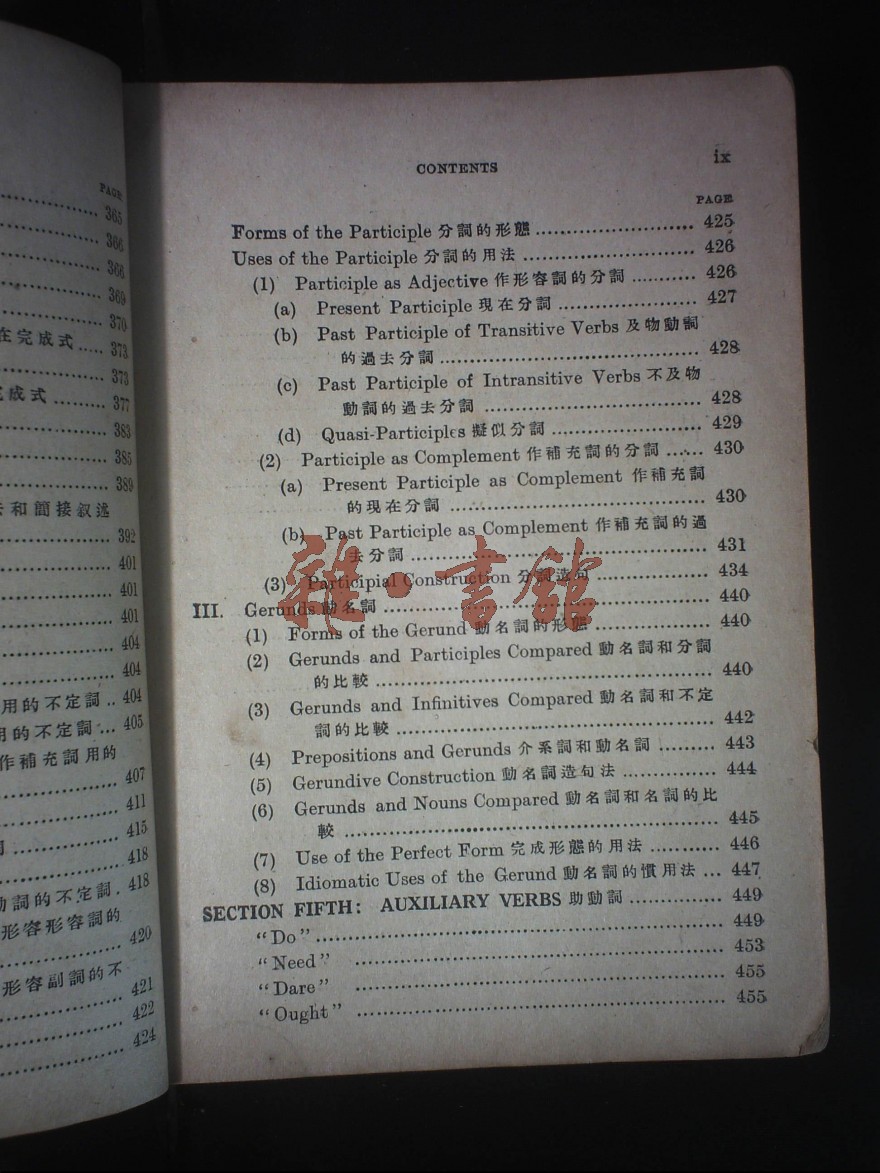 PAGE
365
366
368
369
370
在完成式 ..... 373
373
完成式 ......... 377
383
385
389
和簡接叙述
392
401
401
401
404
404
用的不定詞 .. 404
用的不定詞 ... 405
作補充詞用的
407
411
415
418
動詞的不定詞 . 418
形容形容詞的
420
形容副詞的不
421
422
424
CONTENTS
ix
PAGE
Forms of the Participle 分詞的形態 ........................ 425
Uses of the Participle 分詞的用法 ........................ 426
(1) Participle as Adjective 作形容詞的分詞 ........... 426
(a) Present Participle 現在分詞 ........................ 427
(b) Past Participle of Transitive Verbs 及物動詞
的過去分詞 ........................................ 428
(c) Past Participle of Intransitive Verbs 不及物
動詞的過去分詞 .................................. 428
(d) Quasi-Participles 擬似分詞 ........................ 429
(2) Participle as Complement 作補充詞的分詞 ...... 430
(a) Present Participle as Complement 作補充詞
的現在分詞 ........................................ 430
(b) Past Participle as Complement 作補充詞的過
去分詞 ............................................. 431
(3) Participial Construction 分詞造句 .................. 434
III. Gerunds 動名詞 .................................................. 440
(1) Forms of the Gerund 動名詞的形態 .................. 440
(2) Gerunds and Participles Compared 動名詞和分詞
的比較 .................................................. 440
(3) Gerunds and Infinitives Compared 動名詞和不定
詞的比較 ............................................... 442
(4) Prepositions and Gerunds 介系詞和動名詞 ......... 443
(5) Gerundive Construction 動名詞造句法 ............... 444
(6) Gerunds and Nouns Compared 動名詞和名詞的比
較 ......................................................... 445
(7) Use of the Perfect Form 完成形態的用法 ............ 446
(8) Idiomatic Uses of the Gerund 動名詞的慣用法 ... 447
SECTION FIFTH: AUXILIARY VERBS 助動詞 ............... 449
"Do" ............................................................... 449
"Need" ............................................................ 453
"Dare" ............................................................ 455
"Ought" .......................................................... 455
雜·書館